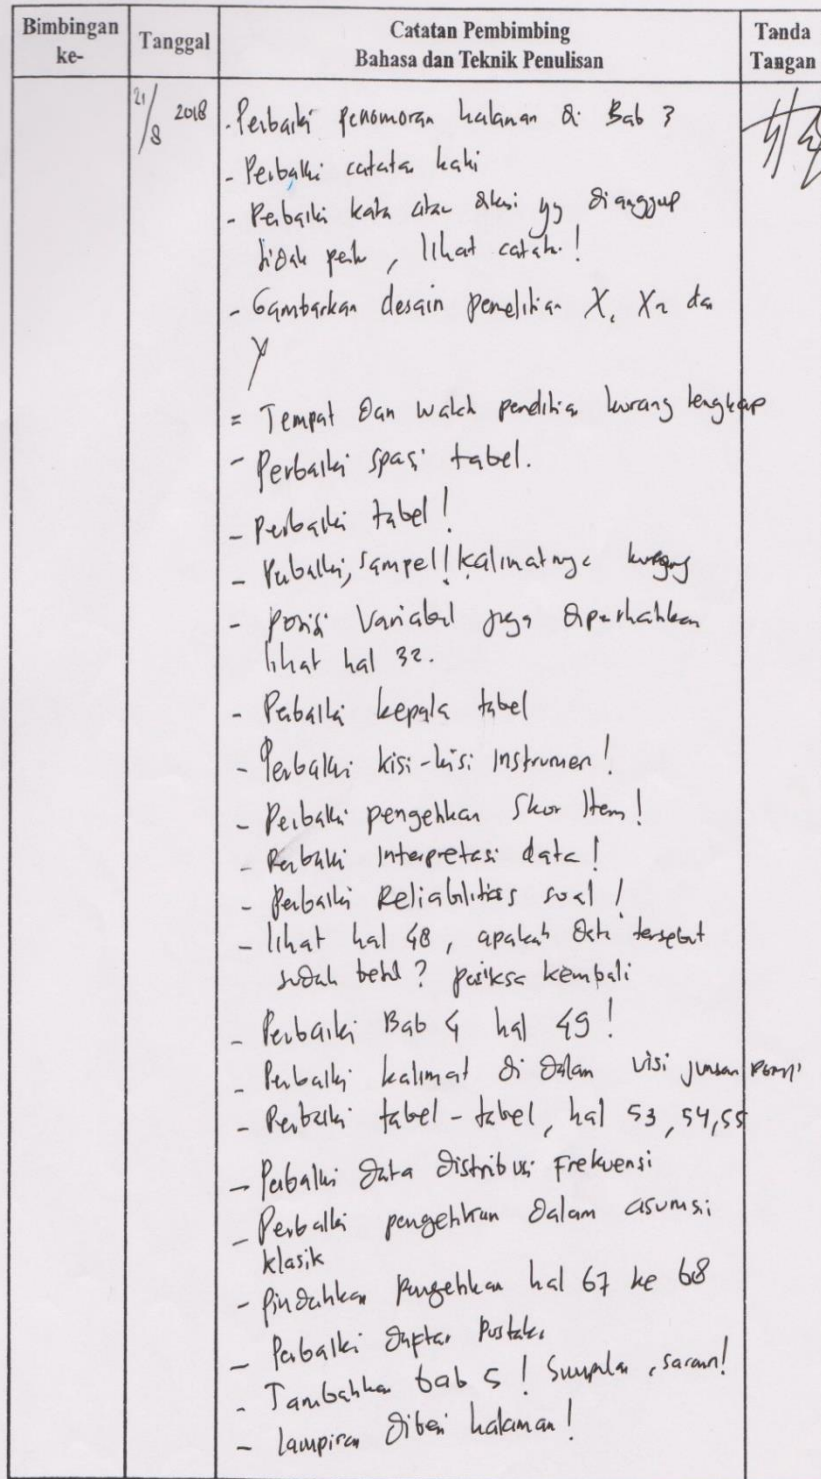 Bimbingan ke-
Tanggal
Catatan Pembimbing
Bahasa dan Teknik Penulisan
Tanda Tangan
21/8 2018
- Perbaiki penomoran halaman di Bab 3
- Perbaiki catatan kaki
- Perbaiki kata atau diksi yg dianggap
tidak perlu, lihat catatan!
- Gambarkan desain penelitian X, X2 dan
Y
= Tempat dan waktu penelitian kurang lengkap
- Perbaiki spasi tabel.
- Perbaiki tabel!
- Perbaiki, sampel! kalimatnya kurang
- Posisi Variabel juga diperhatikan
lihat hal 32.
- Perbaiki kepala tabel
- Perbaiki kisi-kisi Instrumen!
- Perbaiki pengetikan Skor Item!
- Perbaiki Interpretasi data!
- Perbaiki Reliabilitas soal!
- lihat hal 48, apakah data tersebut
sudah betul? periksa kembali
- Perbaiki Bab 4 hal 49!
- Perbaiki kalimat di dalam visi jurusan
- Perbaiki tabel-tabel, hal 53, 54, 55
- Perbaiki data distribusi Frekuensi
- Perbaiki pengetikan dalam asumsi
klasik
- Pindahkan pengetikan hal 67 ke 68
- Perbaiki daftar Pustaka
- Tambahkan bab 5! Simpulan, saran!
- Lampiran diberi halaman!